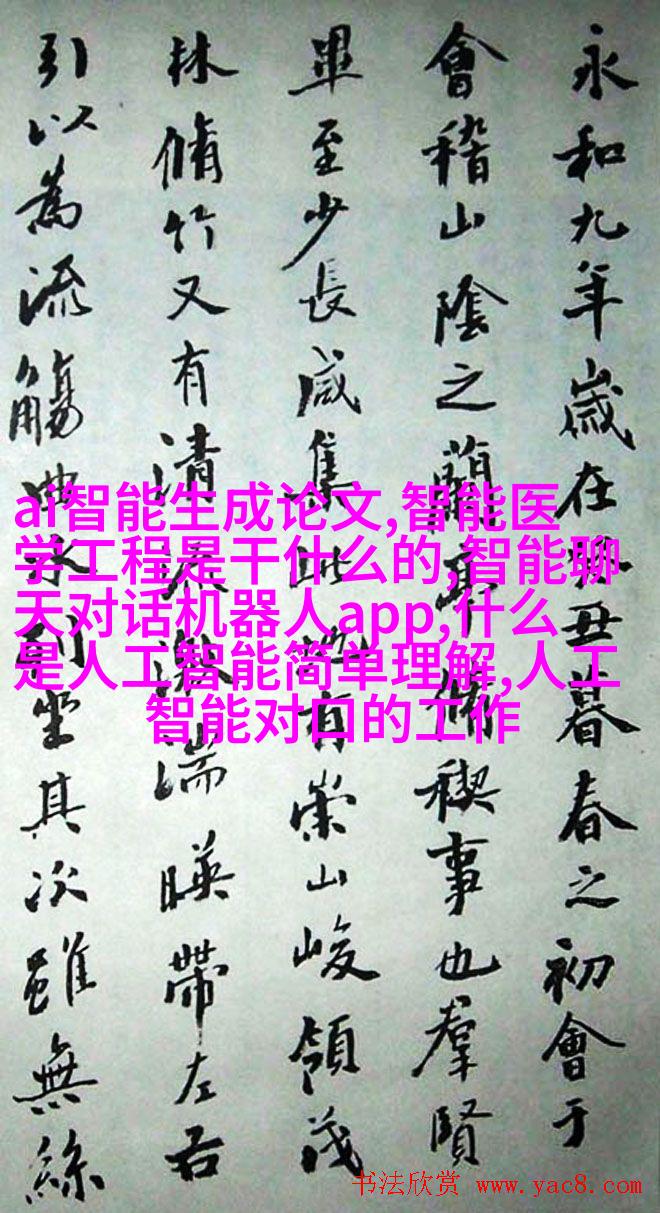 永和九年歲在癸丑暮春之初會于
會稽山陰之蘭亭脩稧事也羣賢
畢至少長咸集此地有崇山峻領茂
林脩竹又有清流激湍暎帶左右
引以為流觴曲水列坐其次雖無絲
ai智能生成论文,智能医
学工程是干什么的,智能聊
天对话机器人app,什么
是人工智能简单理解,人工
智能对口的工作
书法欣赏 www.yac8.com